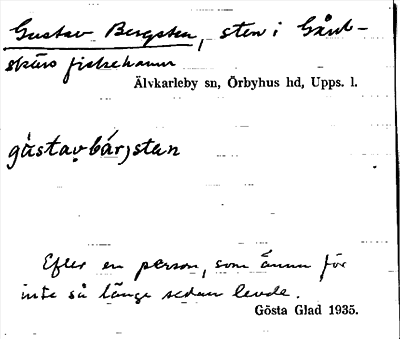 Gustav Bergsten, sten i Gårds-
skärs fiskehamn
Älvkarleby sn, Örbyhus hd, Upps. l.
gùstavbár̩stan
Efter en person, som ännu för
inte så länge sedan levde.
Gösta Glad 1935.